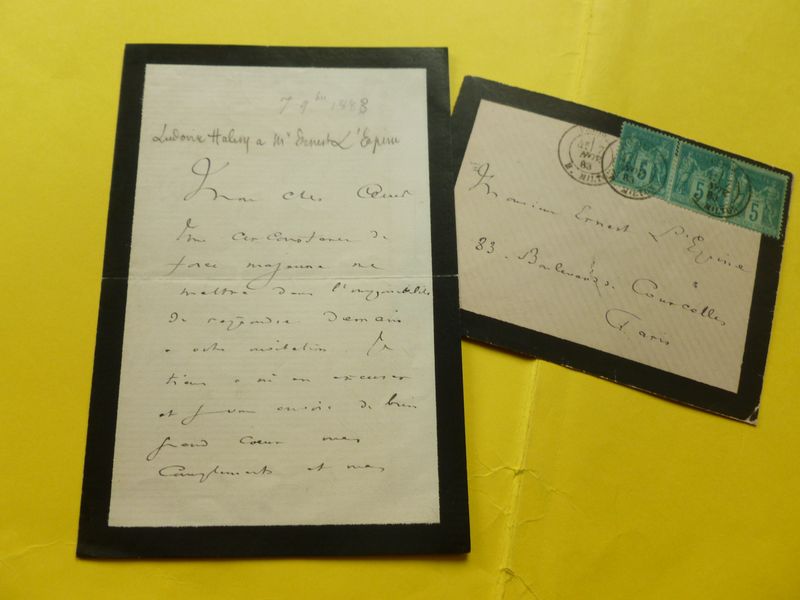 7 9bre 1883
Ludovic Halevy a Mr Ernest L'Epine
Mon cher
Une circonstance de
force majeure me
mettra dans l'impossibilité
de répondre demain
a votre invitation. Je
tiens a m'en excuser
et vous envoie de bien
grand coeur mes
compliments et mes
83
R. MILTON
5 5 5
Monsieur Ernest L'Epine
83. Boulevard de Courcelles
Paris